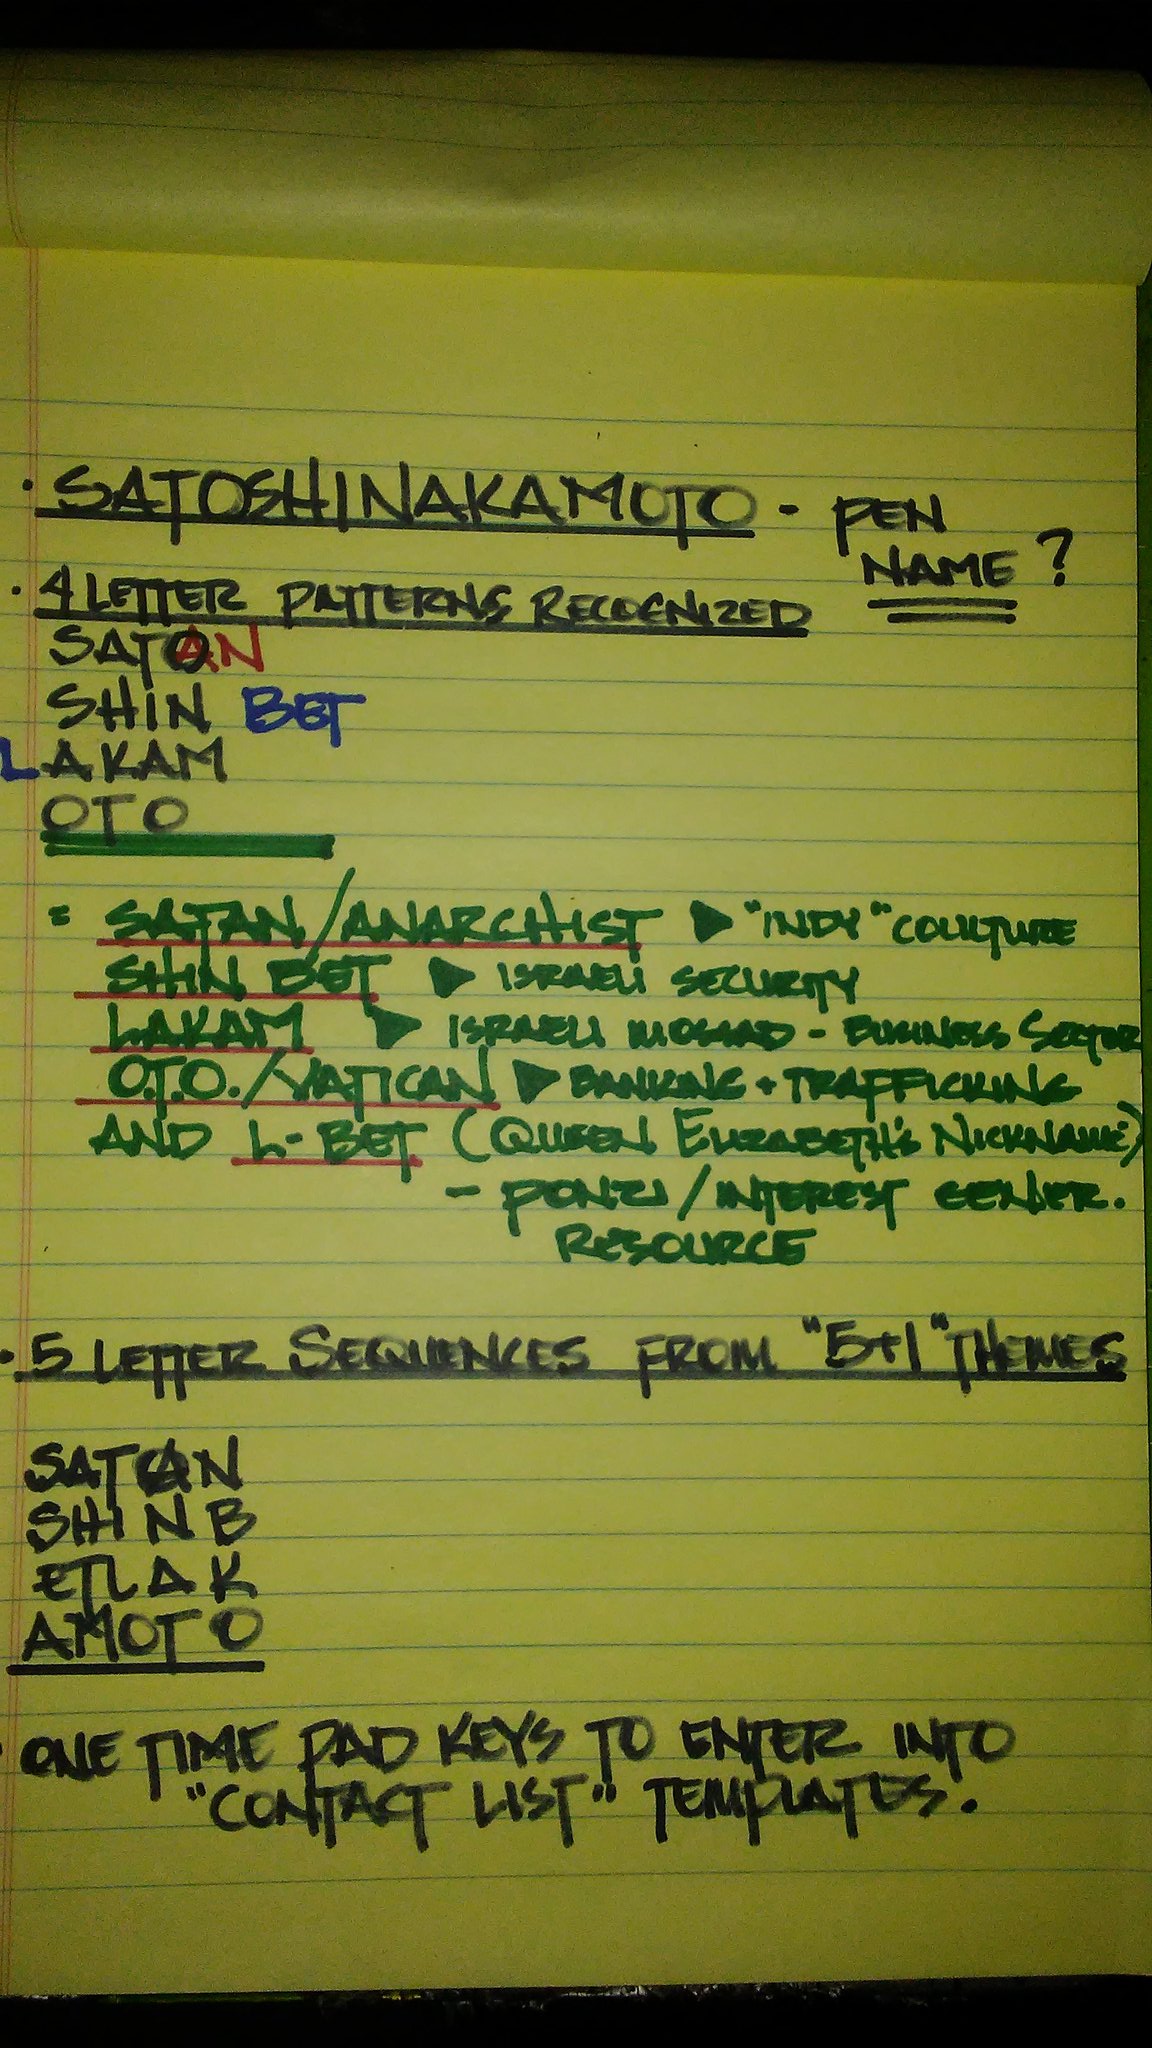 · SATOSHINAKAMOTO - PEN
NAME ?
· 4 LETTER PATTERNS RECOGNIZED
SATOAN
SHIN BET
LAKAM
OTO
= SATAN/ANARCHIST ▶ "INDY" COULTURE
SHIN BET ▶ ISRAELI SECURITY
LAKAM ▶ ISRAELI MOSSAD - BUSINESS SECTOR
O.T.O./VATICAN ▶ BANKING + TRAFFICKING
AND L-BET (QUEEN ELIZABETH'S NICKNAME)
- PONZI/INTEREST GENDER.
RESOURCE
· 5 LETTER SEQUENCES FROM "5+1" THEMES
SATAN
SHINB
ETLAK
AMOTO
· ONE TIME PAD KEYS TO ENTER INTO
"CONTACT LIST" TEMPLATES.